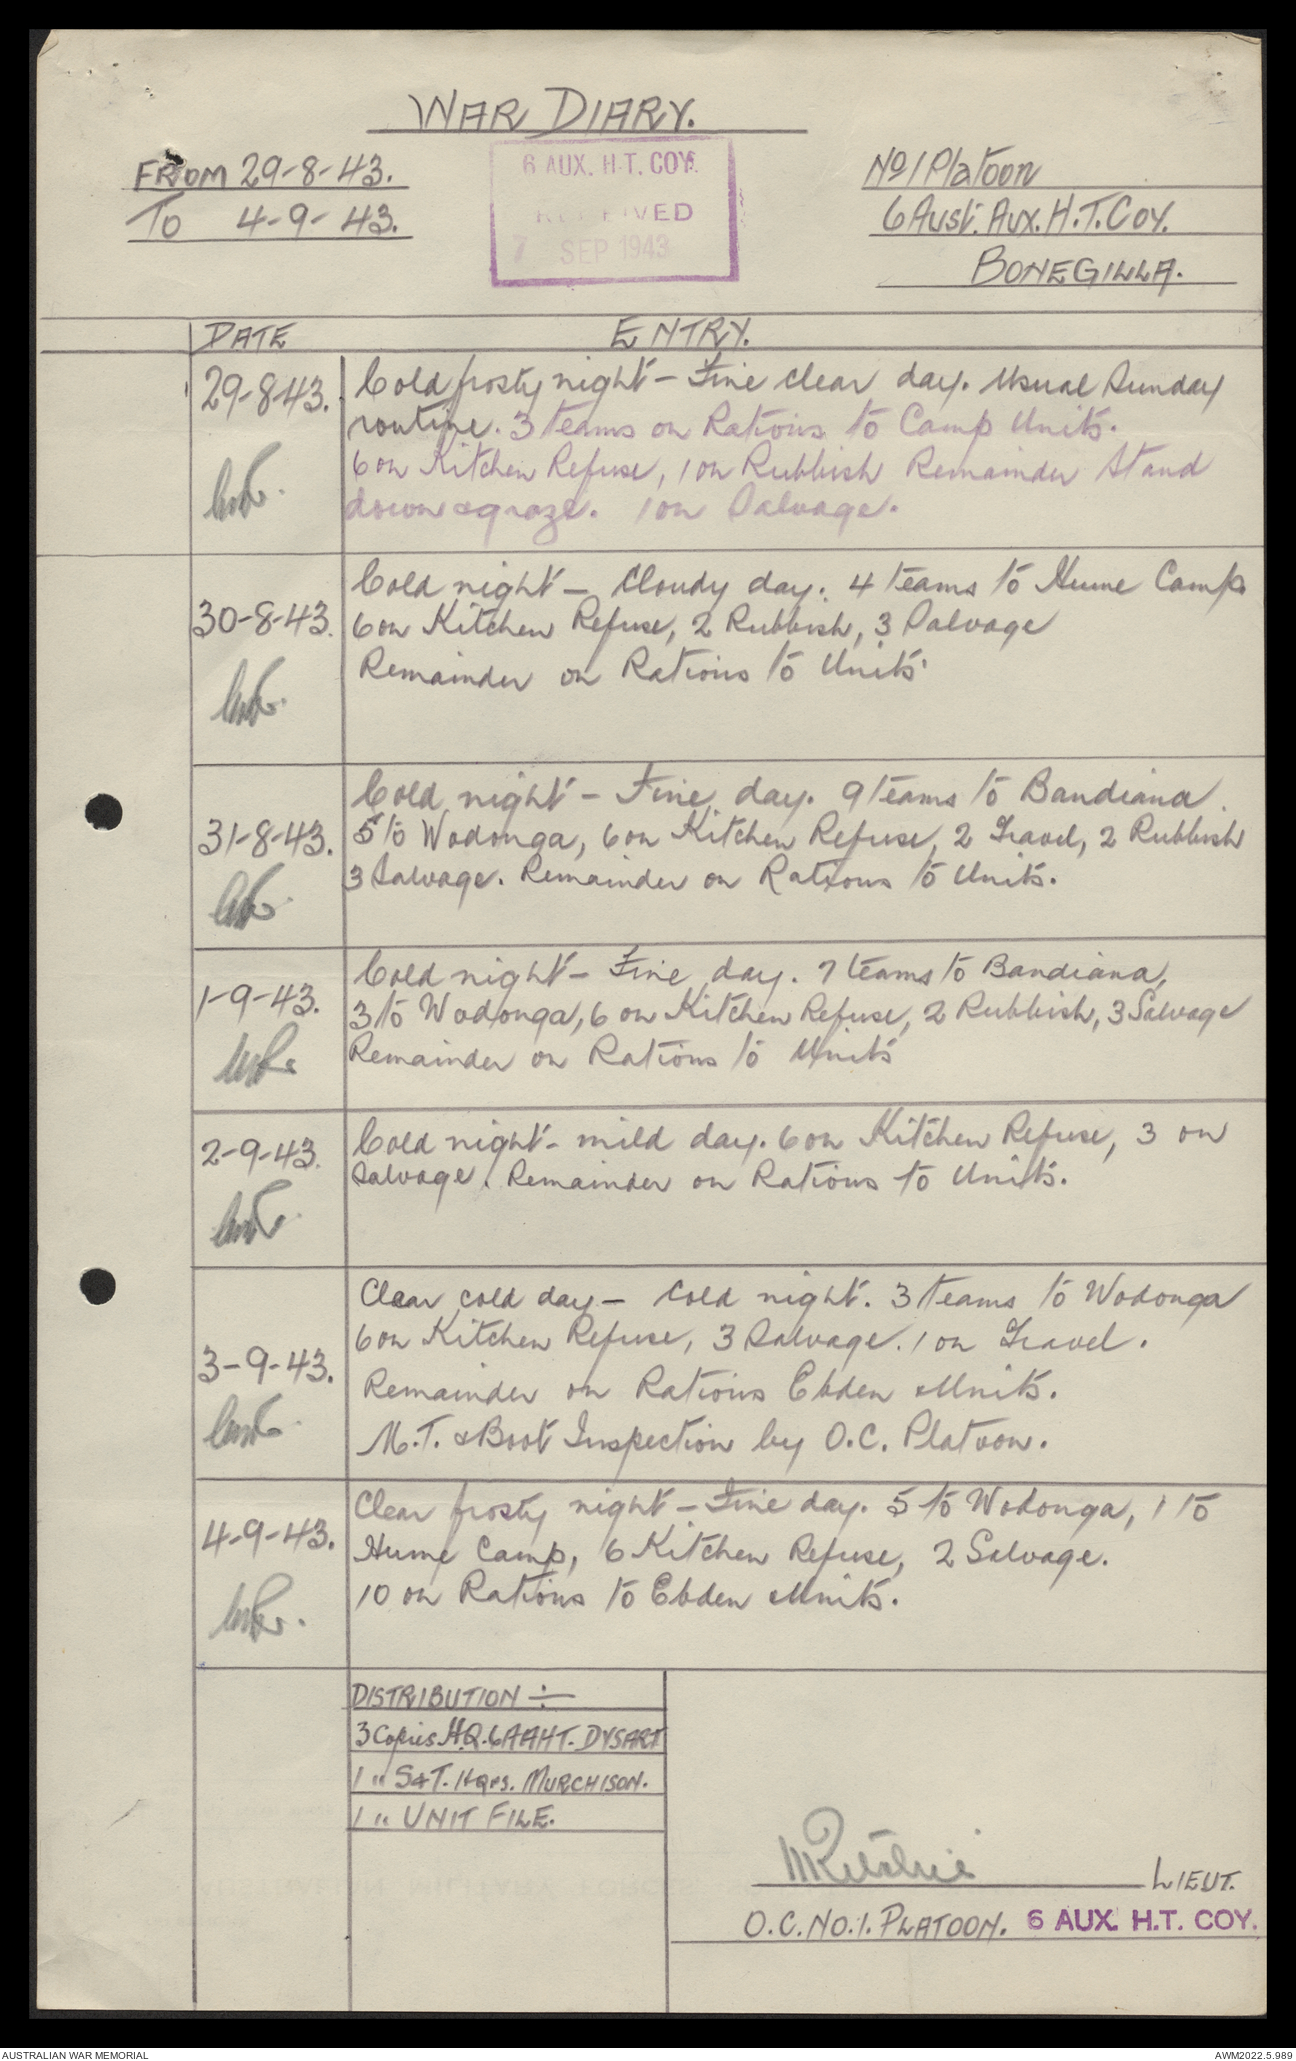 WAR DIARY.
FROM 29-8-43.
TO 4-9-43.
6 AUX. H.T. COY.
RECEIVED
7 SEP 1943
No 1 Platoon
6 Aust. Aux. H.T. Coy.
BONEGILLA.
DATE ENTRY.
29-8-43. Cold frosty night - Fine clear day. Usual Sunday
routine. 3 teams on Rations to Camp Units.
6 on Kitchen Refuse, 1 on Rubbish Remainder Stand
down & graze. 1 on Salvage.
30-8-43. Cold night - Cloudy day. 4 teams to Hume Camp
6 on Kitchen Refuse, 2 Rubbish, 3 Salvage
Remainder on Rations to Units.
31-8-43. Cold night - Fine day. 9 teams to Bandiana.
5 to Wodonga, 6 on Kitchen Refuse, 2 Gravel, 2 Rubbish
3 Salvage. Remainder on Rations to Units.
1-9-43. Cold night - Fine day. 7 teams to Bandiana,
3 to Wodonga, 6 on Kitchen Refuse, 2 Rubbish, 3 Salvage
Remainder on Rations to Units
2-9-43. Cold night - mild day. 6 on Kitchen Refuse, 3 on
Salvage. Remainder on Rations to Units.
3-9-43. Clear cold day - Cold night. 3 teams to Wodonga
6 on Kitchen Refuse, 3 Salvage. 1 on Gravel.
Remainder on Rations Ebden Units.
M.T. & Boot Inspection by O.C. Platoon.
4-9-43. Clear frosty night - Fine day. 5 to Wodonga, 1 to
Hume Camp, 6 Kitchen Refuse, 2 Salvage.
10 on Rations to Ebden Units.
DISTRIBUTION :-
3 Copies H.Q. 6 AAHT. DYSART
1 " S&T. Hqrs. MURCHISON.
1 " UNIT FILE.
MRitchie LIEUT.
O.C. NO.1. PLATOON. 6 AUX. H.T. COY.
AUSTRALIAN WAR MEMORIAL
AWM2022.5.989